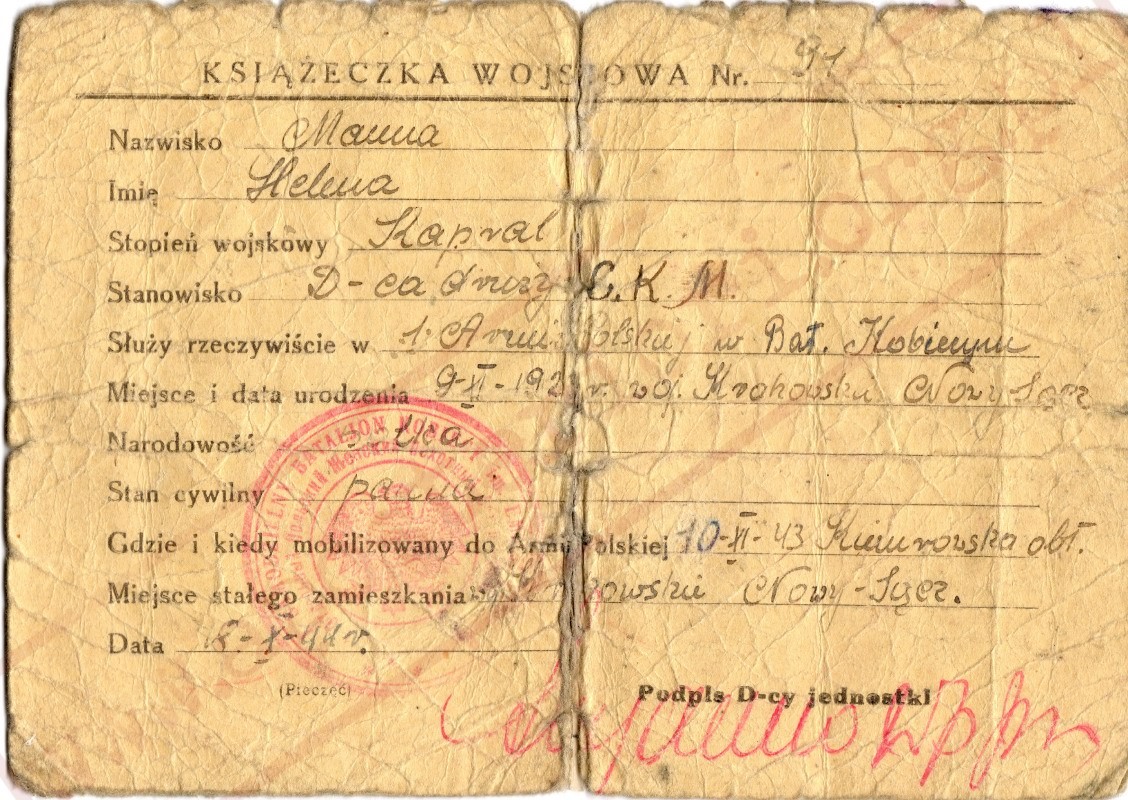 KSIĄŻECZKA WOJSKOWA Nr. 91
Nazwisko Manna
Imię Helena
Stopień wojskowy Kapral
Stanowisko D-ca druży C.K.M.
Służy rzeczywiście w 1. Armii Polskiej w Bat. Kobiecym
Miejsce i data urodzenia 9-XI-192 r. woj. Krakowskie Nowy-Sącz
Narodowość
Stan cywilny panna
Gdzie i kiedy mobilizowany do Armii Polskiej 10-XI-43 Kemerowska obł.
Miejsce stałego zamieszkania Krakowskie Nowy-Sącz.
Data -X-44 r.
(Pieczęć) Podpis D-cy jednostki
BATALJON